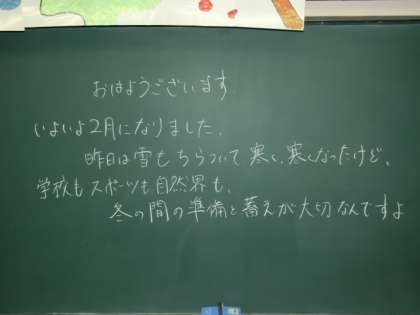 おはようございます
いよいよ2月になりました。
昨日は雪もちらついて寒く、寒くなったけど、
学校もスポーツも自然界も、
冬の間の準備と蓄えが大切なんですよ